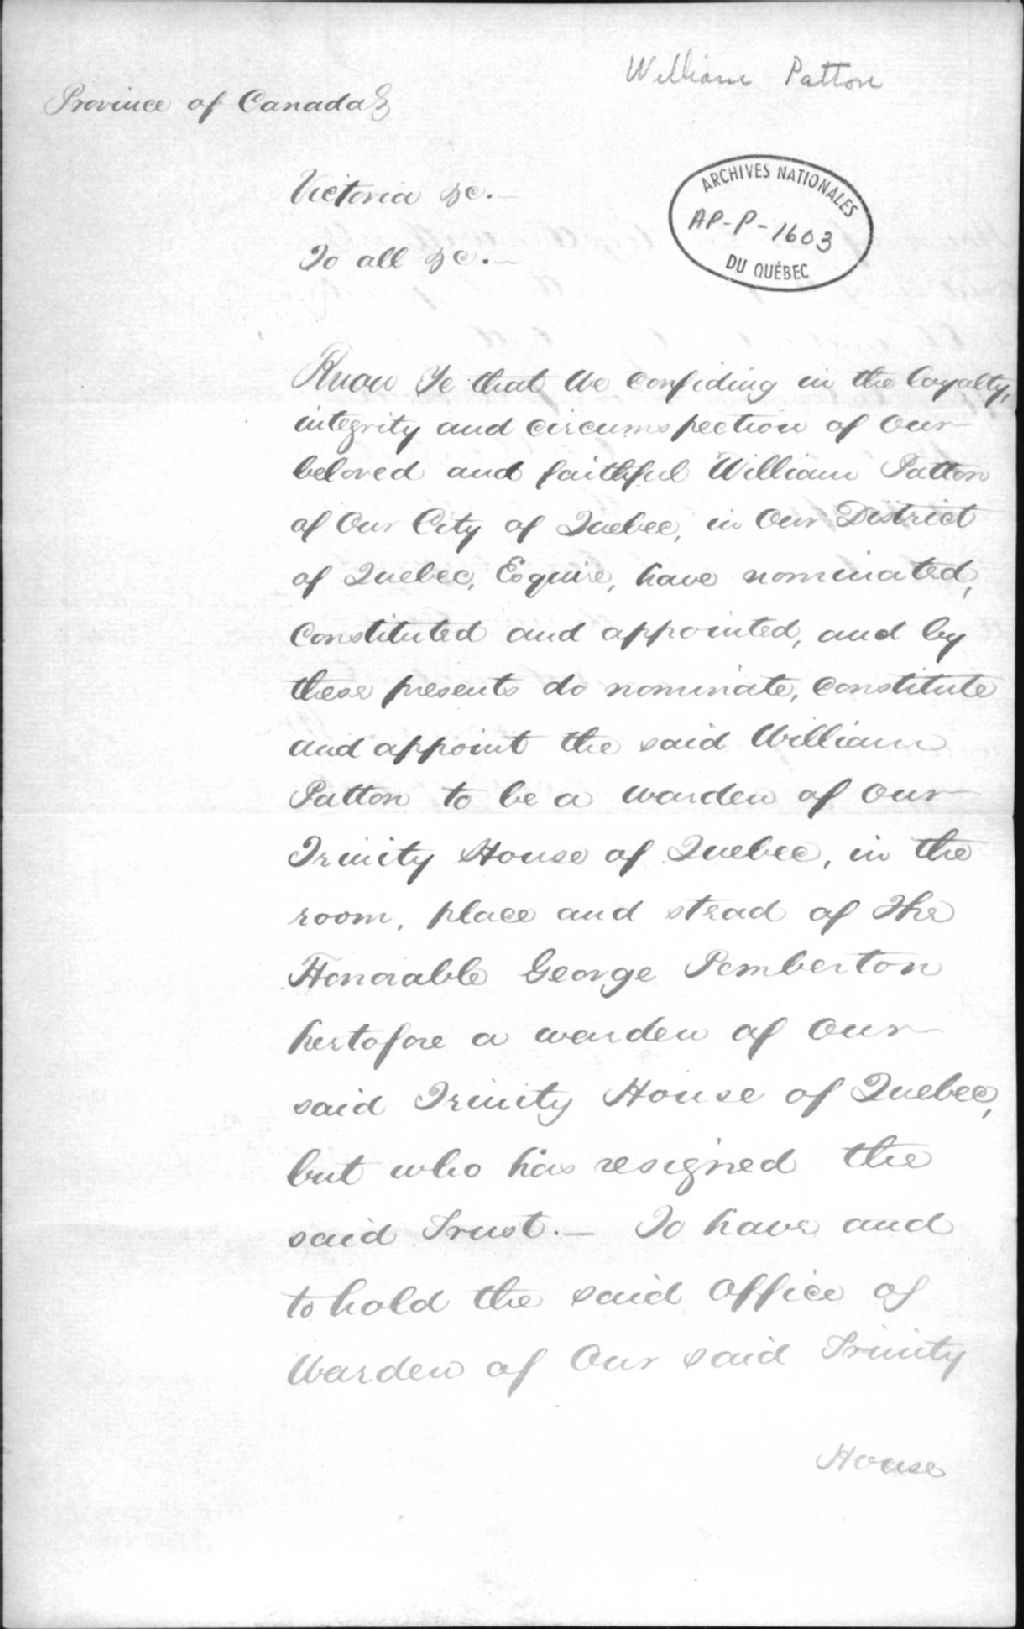 William Patton
Province of Canada
ARCHIVES NATIONALES
AP-P-1603
DU QUÉBEC
Victoria &c. —
To all &c. —
Know Ye that We confiding in the loyalty,
integrity and circumspection of Our
beloved and faithful William Patton
of Our City of Quebec, in Our District
of Quebec, Esquire, have nominated,
constituted and appointed, and by
these presents do nominate, constitute
and appoint the said William
Patton to be a Warden of Our
Trinity House of Quebec, in the
room, place and stead of The
Honorable George Pemberton
hertofore a warden of Our
said Trinity House of Quebec,
but who has resigned the
said Trust. — To have and
to hold the said Office of
Warden of Our said Trinity
House